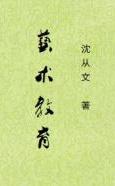 沈从文 著
藝术教育